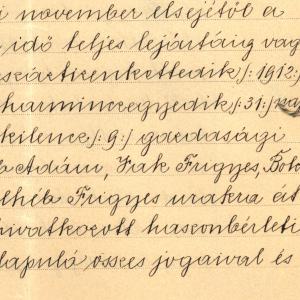 i november elsejétől a
idő teljes lejártáig vag
szásticenkettedik /: 1912:
harmincegyedik /: 31 :/ na
kilencz /: 9 :/ gazdasági
Ádám, Fak Frigyes, Bok
lhéb Frigyes urakra át
hivatkozott haszonbérleti
lapuló összes jogaival és